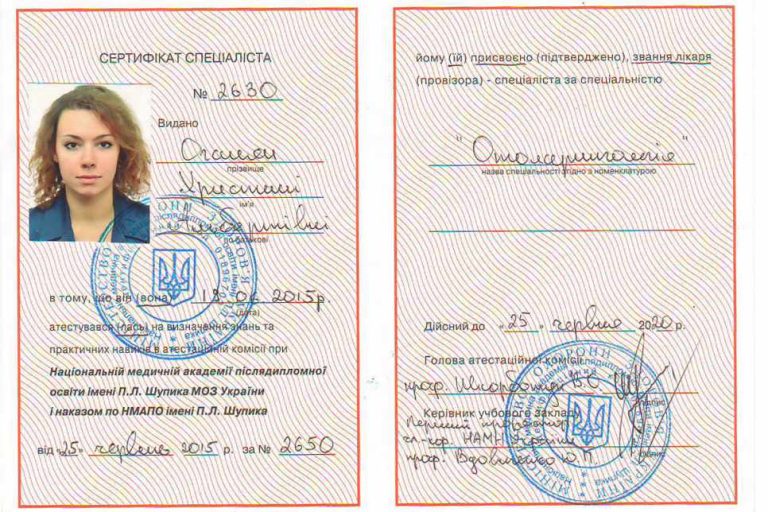 СЕРТИФІКАТ СПЕЦІАЛІСТА
№ 2630
Видано
Оганян
прізвище
Христині
ім'я
Альбертівні
по батькові
в тому, що він (вона) 19.06.2015р.
(дата)
атестувався (лась) на визначення знань та
практичних навиків в атестаційній комісії при
Національній медичній академії післядипломної
освіти імені П.Л. Шупика МОЗ України
і наказом по НМАПО імені П.Л. Шупика
від «25» червня 2015 р. за № 2650
йому (їй) присвоєно (підтверджено), звання лікаря
(провізора) - спеціаліста за спеціальністю
"Отоларингологія"
назва спеціальності згідно з номенклатурою
Дійсний до «25» червня 2020 р.
Голова атестаційної комісії
проф. Шкорботун В.О.
підпис
Керівник учбового закладу
Перший проректор
чл-кор. НАМН України
проф. Вдовиченко Ю.П.
підпис